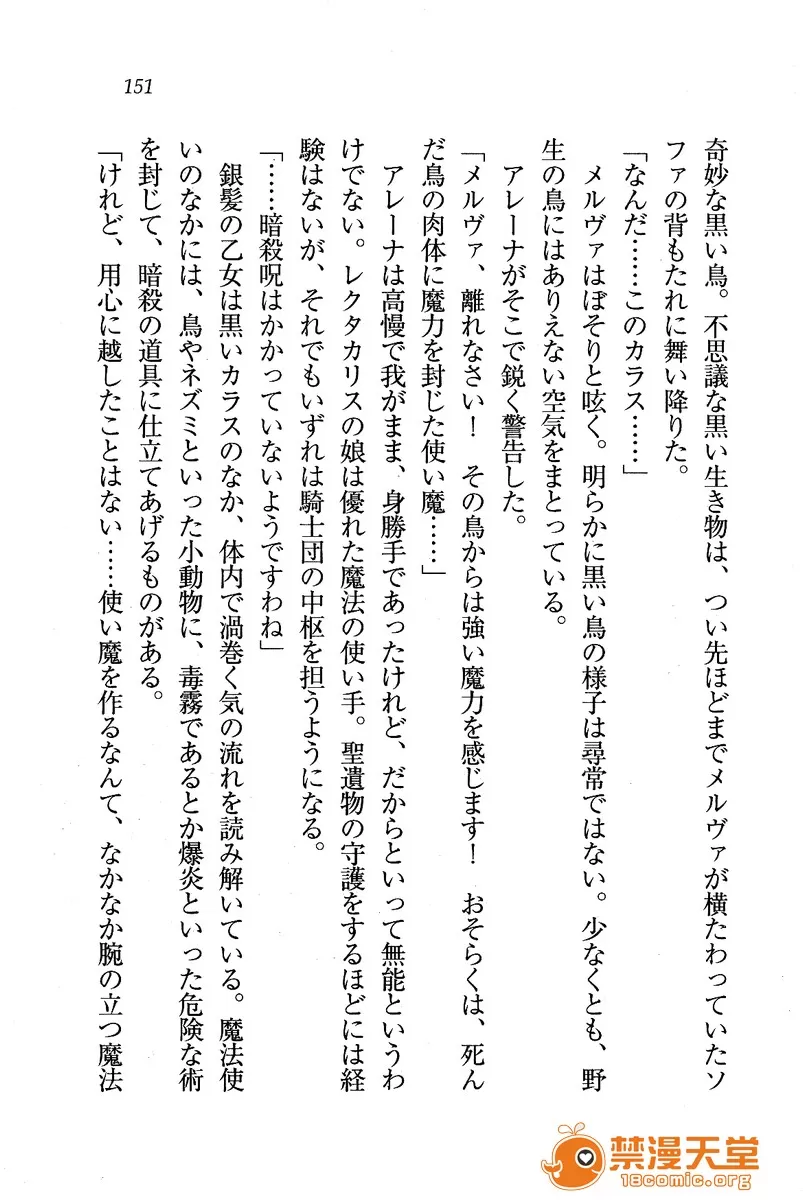 151
奇妙な黒い鳥。不思議な黒い生き物は、つい先ほどまでメルヴァが横たわっていたソ
ファの背もたれに舞い降りた。
「なんだ……このカラス……」
メルヴァはぼそりと呟く。明らかに黒い鳥の様子は尋常ではない。少なくとも、野
生の鳥にはありえない空気をまとっている。
アレーナがそこで鋭く警告した。
「メルヴァ、離れなさい！　その鳥からは強い魔力を感じます！　おそらくは、死ん
だ鳥の肉体に魔力を封じた使い魔……」
アレーナは高慢で我がまま、身勝手であったけれど、だからといって無能というわ
けでない。レクタカリスの娘は優れた魔法の使い手。聖遺物の守護をするほどには経
験はないが、それでもいずれは騎士団の中枢を担うようになる。
「……暗殺呪はかかっていないようですわね」
銀髪の乙女は黒いカラスのなか、体内で渦巻く気の流れを読み解いている。魔法使
いのなかには、鳥やネズミといった小動物に、毒霧であるとか爆炎といった危険な術
を封じて、暗殺の道具に仕立てあげるものがある。
「けれど、用心に越したことはない……使い魔を作るなんて、なかなか腕の立つ魔法
禁漫天堂
18comic.org